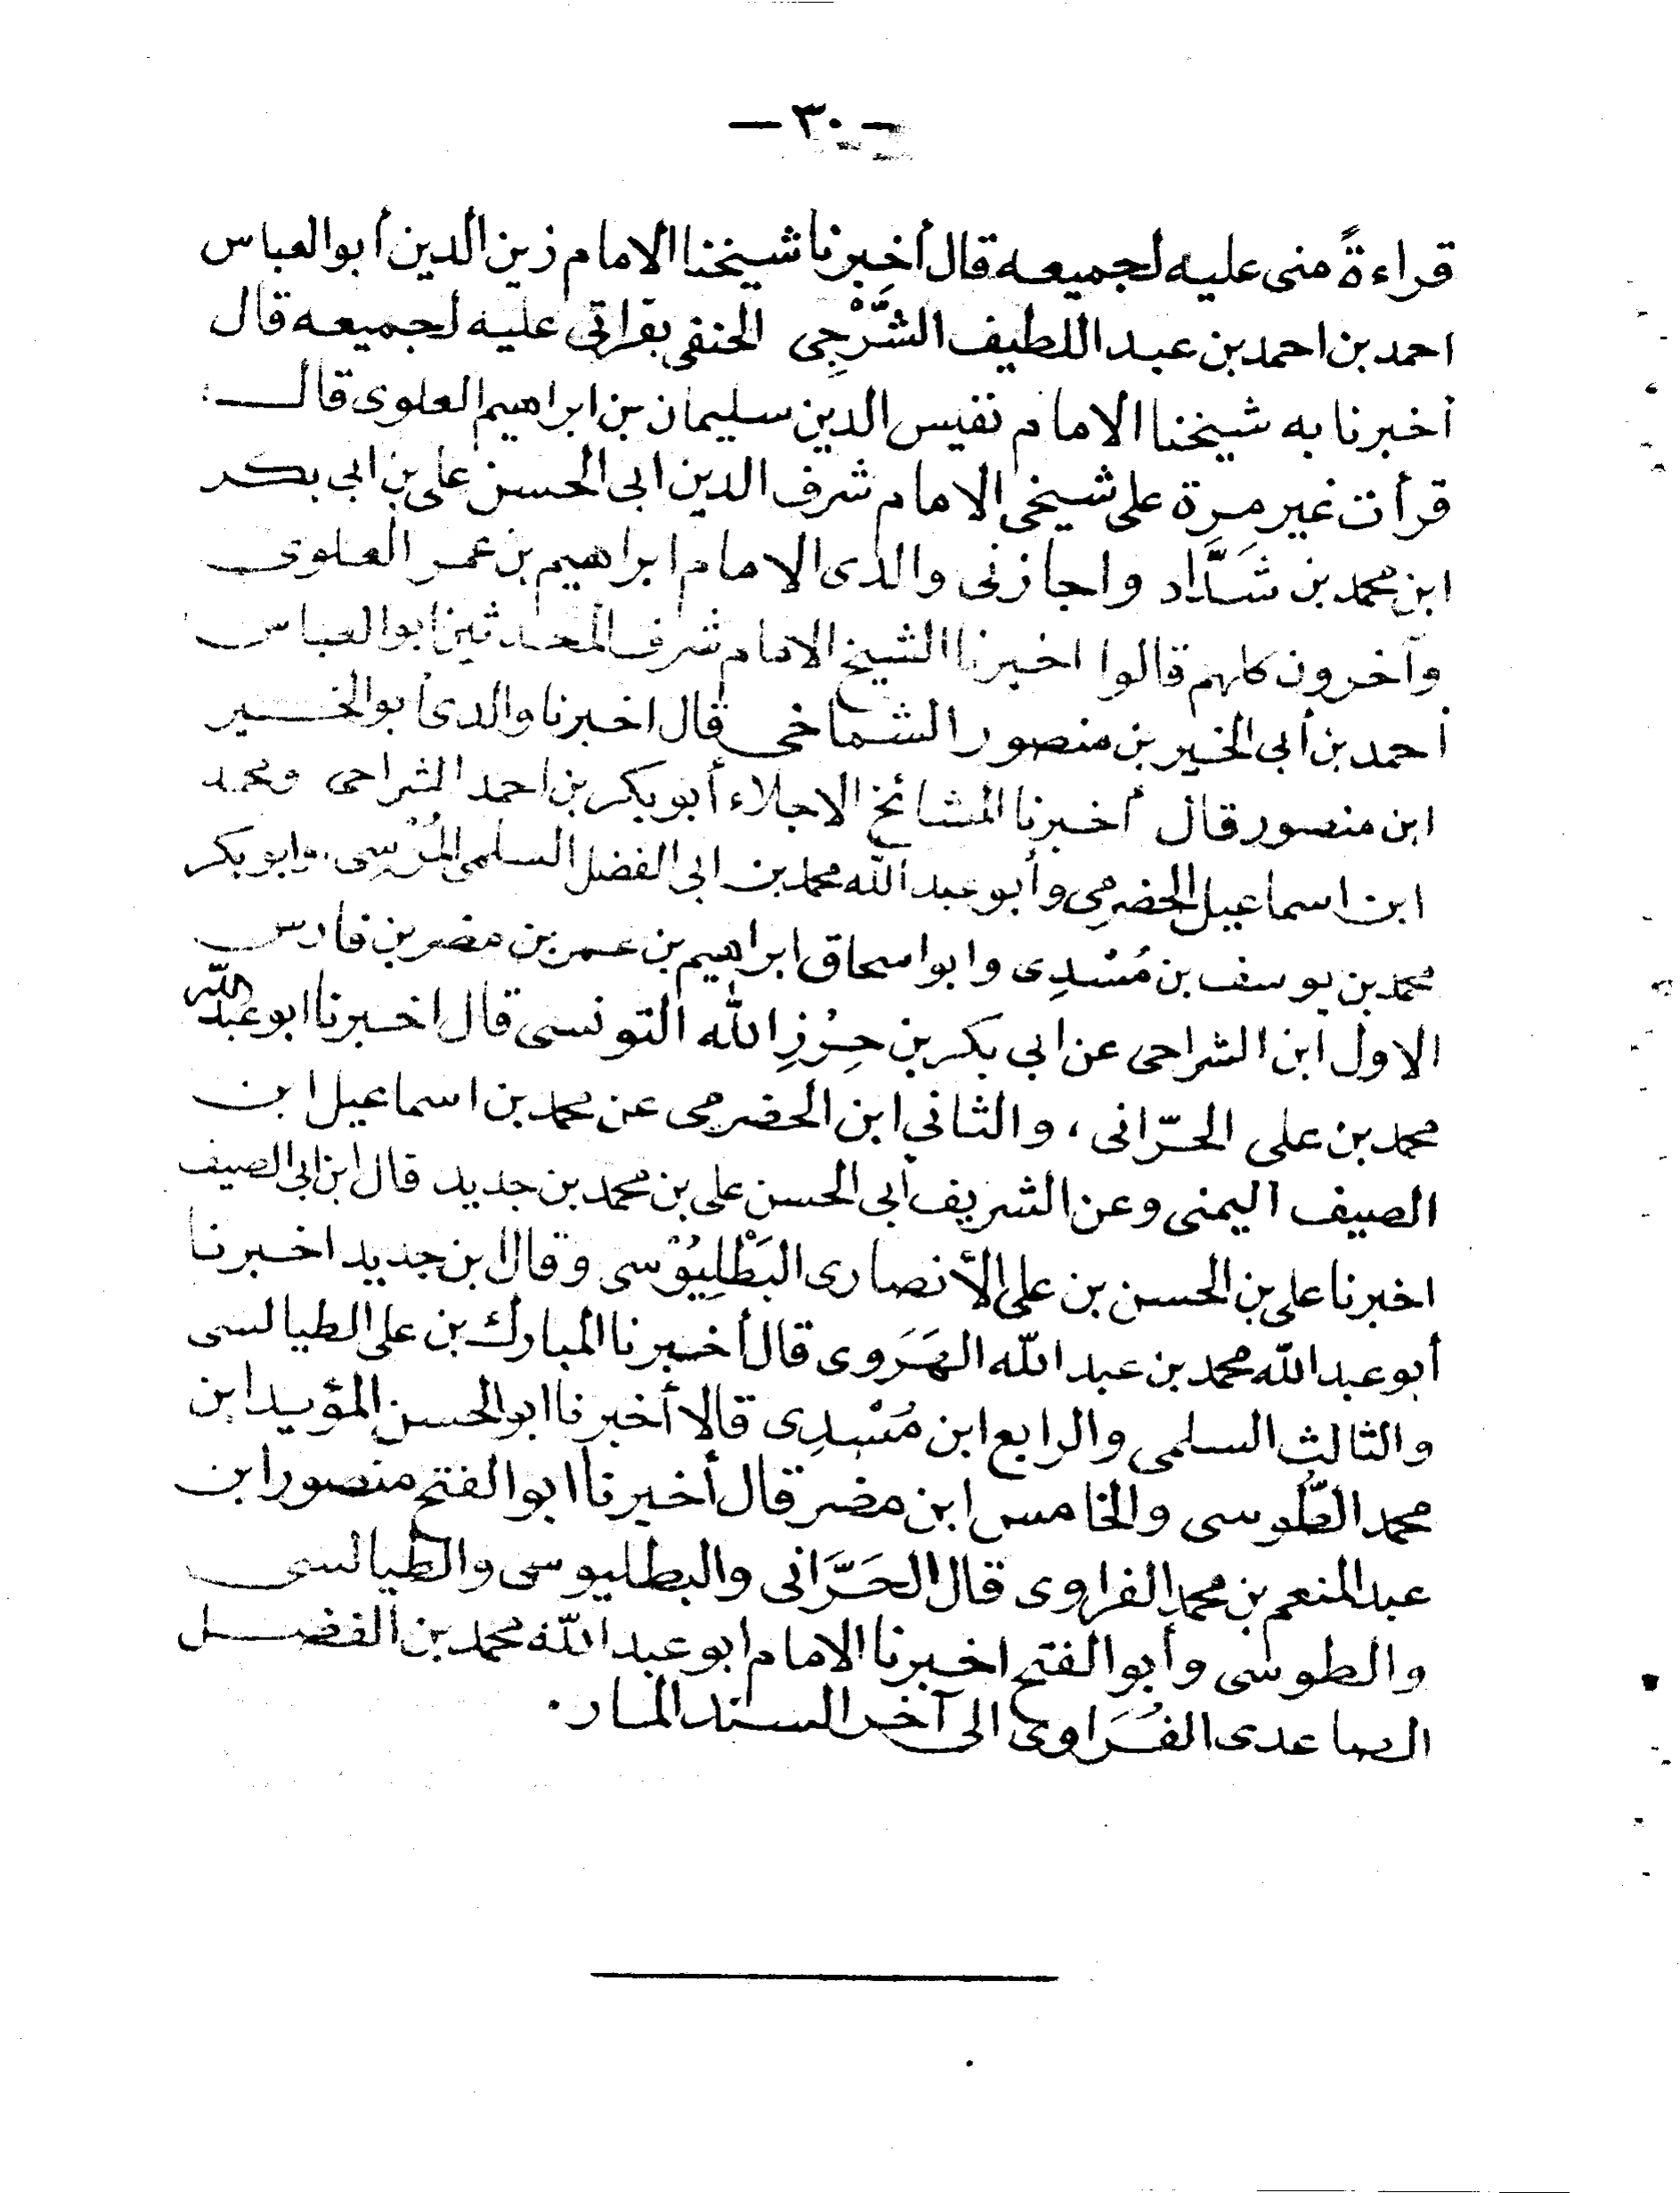 — ٣٠ —
قراءةً منى عليه لجميعه قال أخبرنا شيخنا الامام زين الدين أبو العباس
احمد بن احمد بن عبد اللطيف الشَّرْجِى الحنفى بقراتى عليه لجميعه قال
أخبرنا به شيخنا الامام نفيس الدين سليمان بن ابراهيم العلوى قال :
قرأت غير مرة على شيخى الامام شرف الدين ابى الحسن على بن ابى بكر
ابن محمد بن شَدَّاد واجازنى والدى الامام ابراهيم بن عمر العلوى
وآخرون كلهم قالوا اخبرنا الشيخ الامام شرف المحدثين ابو العباس
أحمد بن أبى الخير بن منصور الشماخى قال اخبرنا والدى أبو الخير
ابن منصور قال أخبرنا المشائخ الاجلاء أبو بكر بن احمد الشراحى ومحمد
ابن اسماعيل الحضرمى وأبو عبد الله محمد بن ابى الفضل السلمى المُرْسِى وابو بكر
محمد بن يوسف بن مُسْدِى وابو اسحاق ابراهيم بن عمر بن مضر بن فارس
الاول ابن الشراحى عن ابى بكر بن حِرْزِ الله التونسى قال اخبرنا ابو عبد الله
محمد بن على الحرّانى ، والثانى ابن الحضرمى عن محمد بن اسماعيل ابن
الصيف اليمنى وعن الشريف أبى الحسن على بن محمد بن جديد قال ابن ابى الصيف
اخبرنا على بن الحسن بن على الأنصارى البَطْلِيُوْسى وقال ابن جديد اخبرنا
أبو عبد الله محمد بن عبد الله الهَرَوى قال أخبرنا المبارك بن على الطيالسى
والثالث السلمى والرابع ابن مُسْدِى قالا أخبرنا ابو الحسن المؤيد ابن
محمد الطُّوسى والخامس ابن مضر قال أخبرنا ابو الفتح منصور ابن
عبد المنعم بن محمد الفراوى قال الحَرَّانى والبطليوسى والطيالسى
والطوسى وأبو الفتح اخبرنا الامام ابو عبد الله محمد بن الفضل
الصاعدى الفُرَاوى الى آخر السند المار .